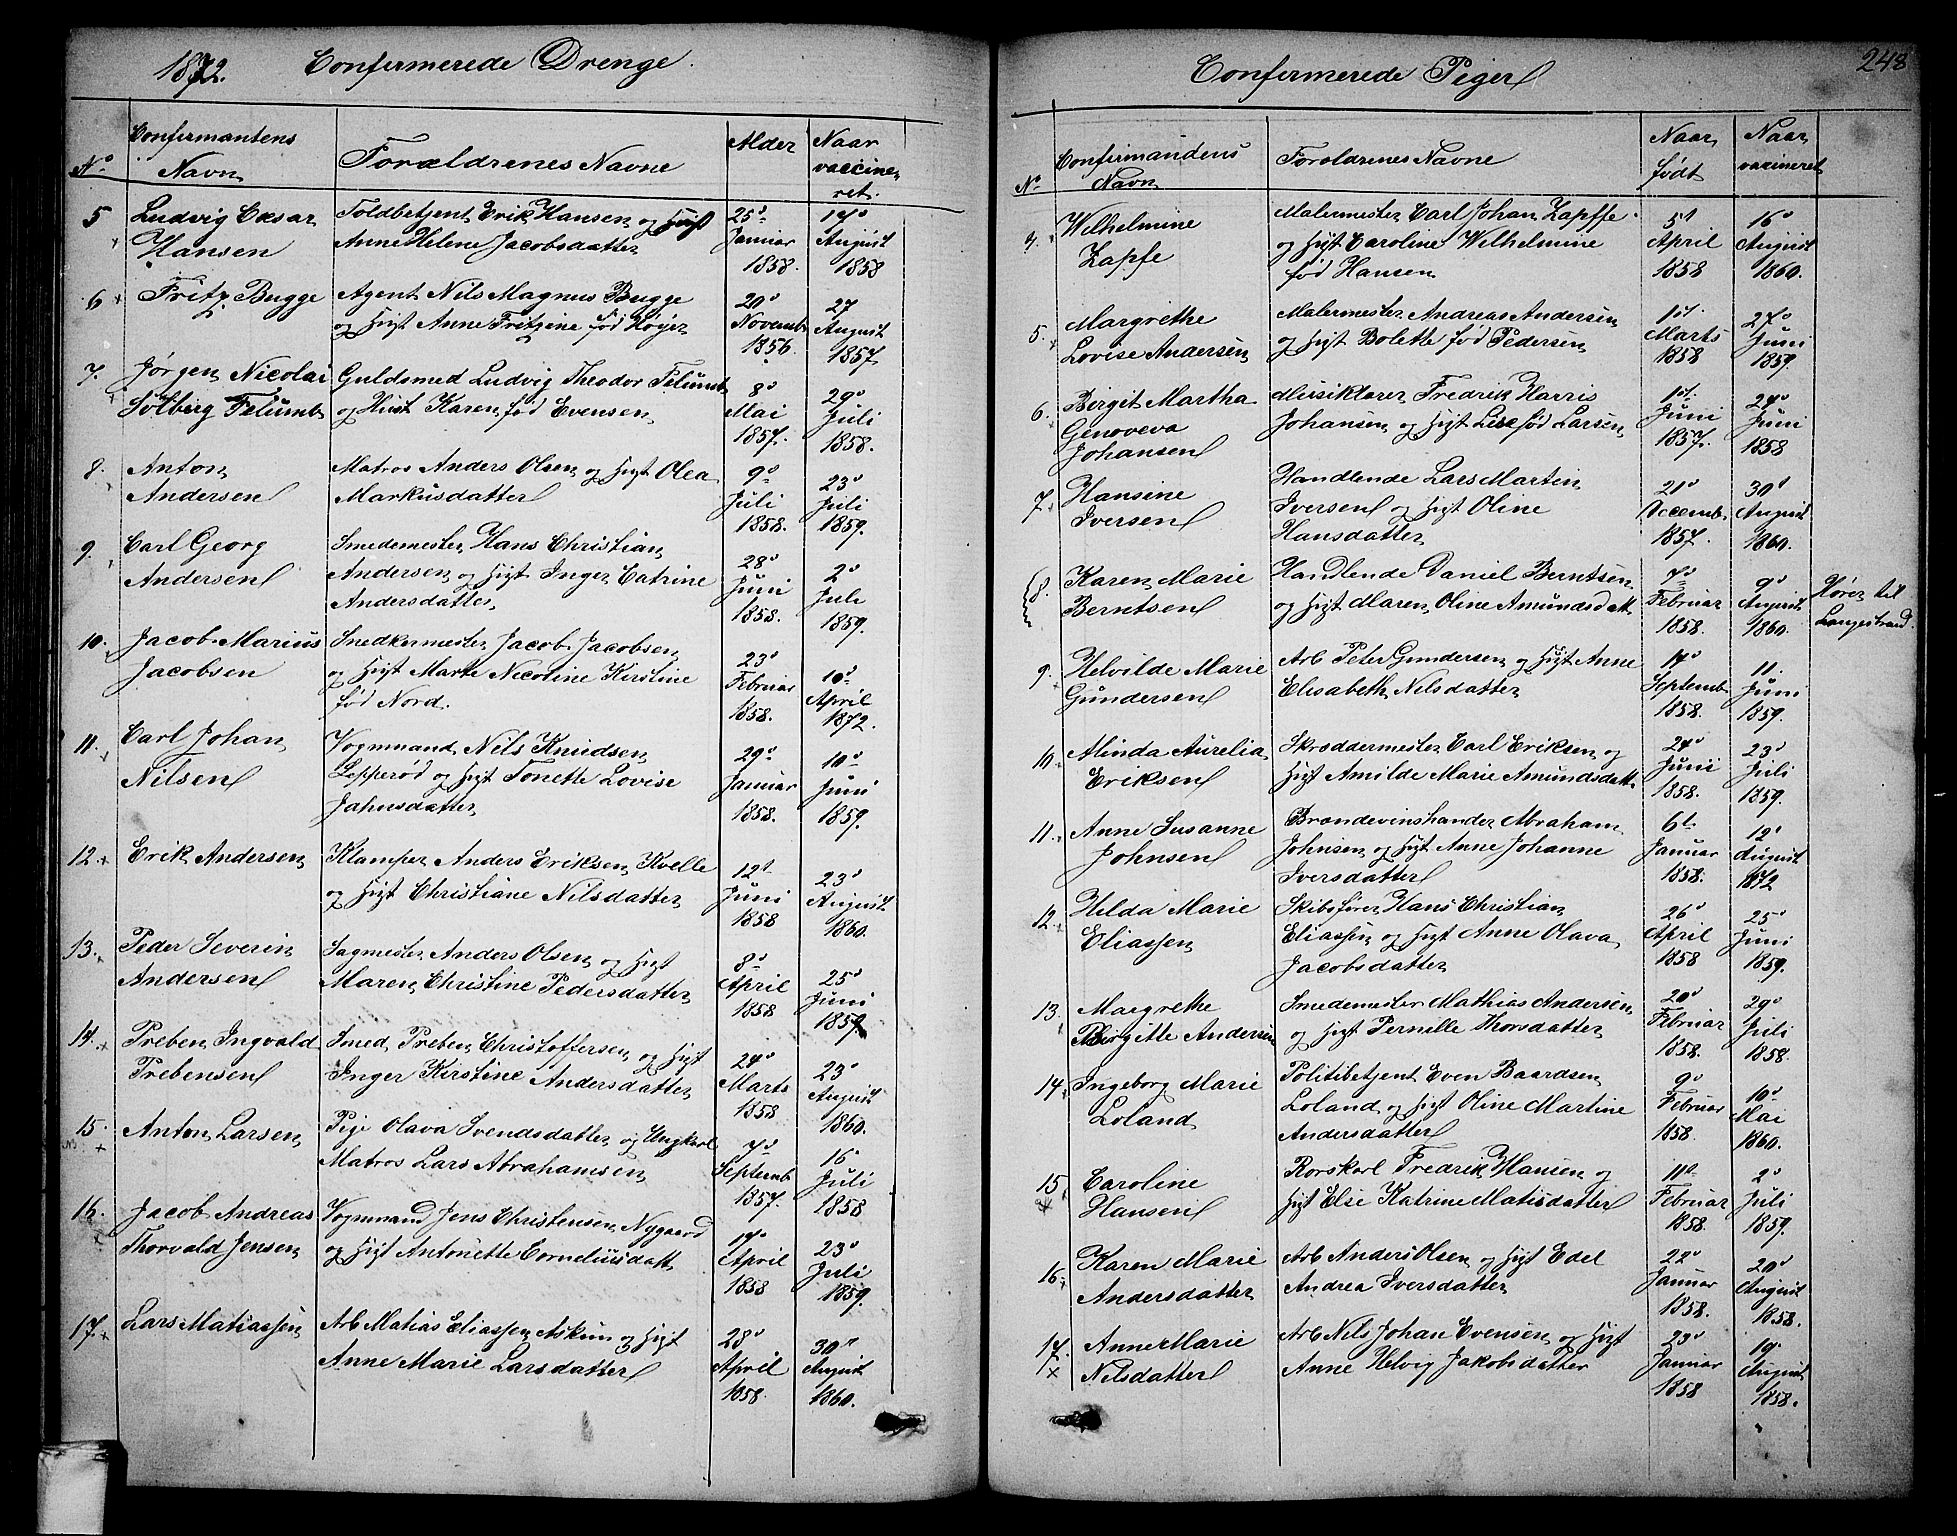 1872. Confermerede Drenge.
No
Confirmantens
Navn
Forældrenes Navne
Alder
Naar
vaccine-
ret.
5 Ludvig Cæsar
Hansen
Toldbetjent Erik Hansen og Hust
Anne Helene Jacobsdatter
25de
Januar
1858.
14de
August
1858
6 Fritz Bugge
Agent Nils Magnus Bugge
og Hust Anne Fritzine fød Høyer
20de
Novemb
1856.
27
August
1857.
7. Jørgen Nicolai
Solberg Felumb
Guldsmed Ludvig Theodor Felumb
og Hust Karen fød Evensen
8de
Mai
1857.
29de
Juli
1858.
8. Anton
Andersen
Matros Anders Olsen og Hust Olea
Markusdatter
9de
Juli
1858.
23de
Juli
1859.
9. Carl Georg
Andersen
Smedemester Hans Christian
Andersen og Hust Inger Catrine
Andersdatter
28de
Juni
1858.
2de
Juli
1859.
10. Jacob Marius
Jacobsen
Snedkermester Jacob Jacobsen
og Hust Marte Nicoline Kirstine
fød Nord.
23de
Februar
1858.
10de
April
1872.
11. Carl Johan
Nilsen
Vognmand Nils Knudsen
Lepperød og Hust Tonette Lovise
Jahnsdatter
29de
Januar
1858.
10de
Juni
1859.
12. Erik Andersen
Klamper Anders Eriksen Kvelle
og Hust Christiane Nilsdatter
12te
Juni
1858
23de
August
1860.
13. Peder Severin
Andersen
Sagmester Anders Olsen og Hust
Maren Christine Pedersdatter
8de
April
1858
25de
Juni
1859
14. Preben Ingvald
Prebensen
Smed Preben Christoffersen og Hust
Inger Kirstine Andersdatter
24de
Marts
1858
23de
August
1860.
15. Anton Larsen
Pige Olava Svendsdatter og Ungkarl
Matros Lars Abrahamsen
7de
Septemb
1857.
16
Juli
1858
16. Jacob Andreas
Thorvald Jensen
Vognmand Jens Christensen Nygaard
og Hust Antonette Corneliusdatt
14de
April
1858
23de
Juli
1859.
17. Lars Matiassen
Arb Matias Eliassen Askum og Hust
Anne Marie Larsdatter
28de
April
1858.
30de
August
1860.
Confermerede Piger
248
No
Confirmandens
Navn
Foreldrenes Navne
Naar
født
Naar
vaccineret
4. Wilhelmine
Zapfe
Malermester Carl Johan Zapffe
og Hust Caroline Wilhelmine
fød Hansen
5te
April
1858
16de
August
1860.
5. Margrethe
Lovise Andersen
Malermester Andreas Andersen
og Hust Bolette fød Pedersen
1ste
Marts
1858
27de
Juni
1859.
6. Birgit Martha
Genoveva
Johansen
Musiklærer Fredrik Harris
Johansen og Hust Lise fød Larsen
1ste
Juni
1857.
24de
Juni
1858
7. Hansine
Iversen
Handlende Lars Martin
Iversen og Hust Oline
Hansdatter
21de
Decemb
1857.
30de
August
1860.
8. Karen Marie
Berntsen
Handlende Daniel Berntsen
og Hust Maren Oline Amundsdatt.
7de
Februar
1858.
9de
August
1860.
Hører til
Langestrand.
9. Helvilde Marie
Gundersen
Arb Peter Gundersen og Hust Anne
Elisabeth Nilsdatter
14de
Septemb
1858.
11.
Juni
1859.
10. Alinda Aurelia
Eriksen
Skræddermester Carl Eriksen og
Hust Amilde Marie Amundsdatt.
24de
Juni
1858.
23de
Juli
1859.
11. Anne Susanne
Johnsen
Brændevinshandler Abraham
Johnsen og Hust Anne Johanne
Iversdatter
6te
Januar
1858.
19de
August
1872
12. Hilda Marie
Eliassen
Skibsfører Hans Christian
Eliassen og Hust Anne Olava
Jacobsdatter
26de
April
1858
25de
Juni
1859.
13. Margrethe
Birgitte Andersen
Smedemester Mathias Andersen
og Hust Pernelle Thorsdatter
20de
Februar
1858.
29de
Juli
1858.
14. Ingeborg Marie
Loland
Politibetjent Even Baardsen
Loland og Hust Oline Martine
Andersdatter
9de
Februar
1858.
10de
Mai
1860.
15. Caroline
Hansen
Rorskarl Fredrik Hansen og
Hust Else Katrine Matisdatter
11te
Februar
1858.
2de
Juli
1859.
16. Karen Marie
Andersdatter
Arb Anders Olsen og Hust Edel
Andrea Iversdatter
22de
Januar
1858.
20de
August
1858.
17. Anne Marie
Nilsdatter
Arb Nils Johan Evensen og Hust
Anne Helvig Jakobsdatter
23de
Januar
1858
19de
August
1858.